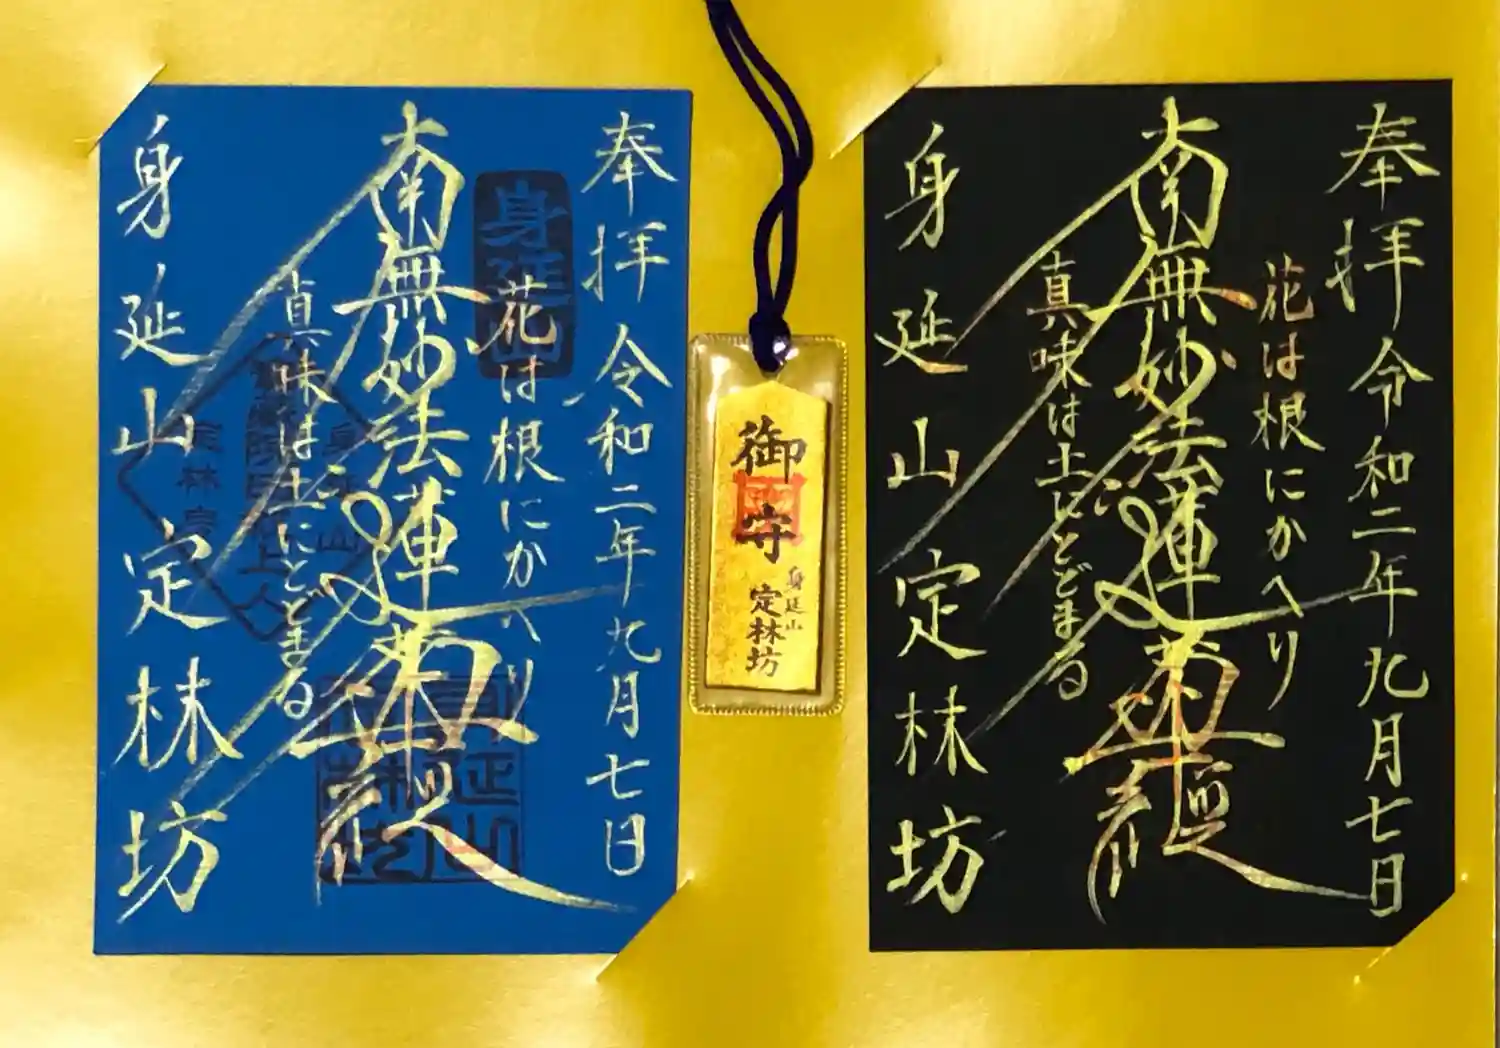 奉拝 令和二年九月七日
花は根にかへり
南無妙法蓮華経
真味は土にとどまる
身延山定林坊
身延山
御守
身延山
定林坊
奉拝 令和二年九月七日
花は根にかへり
南無妙法蓮華経
真味は土にとどまる
身延山定林坊